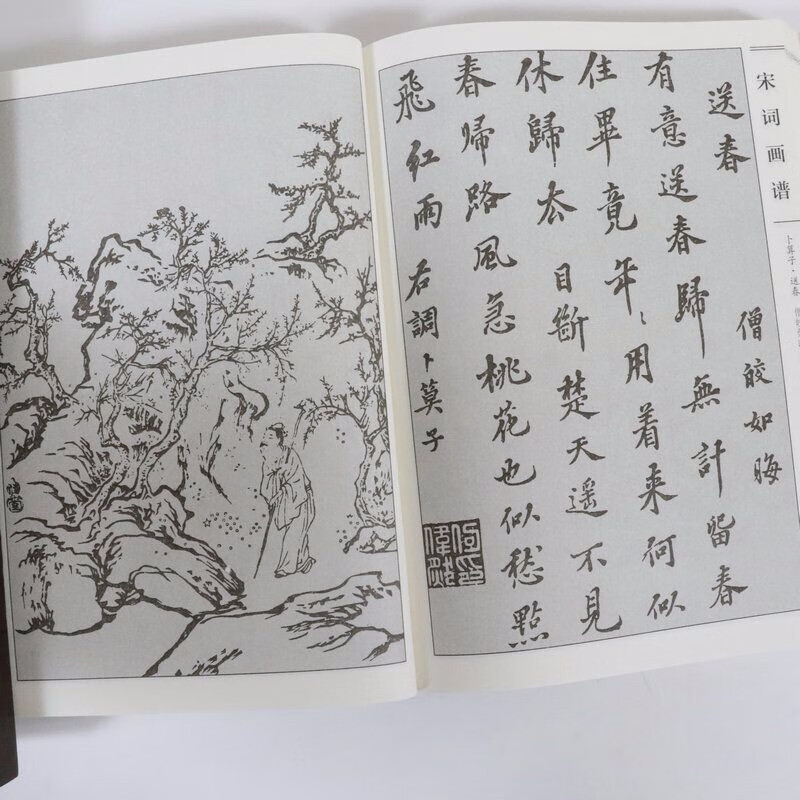 宋词画谱
卜算子·送春
送春
僧皎如晦
有意送春歸無計留春
住畢竟年〻用着来何似
休歸去目斷楚天遥不見
春歸路風急桃花也似愁點
飛紅雨右調卜算子